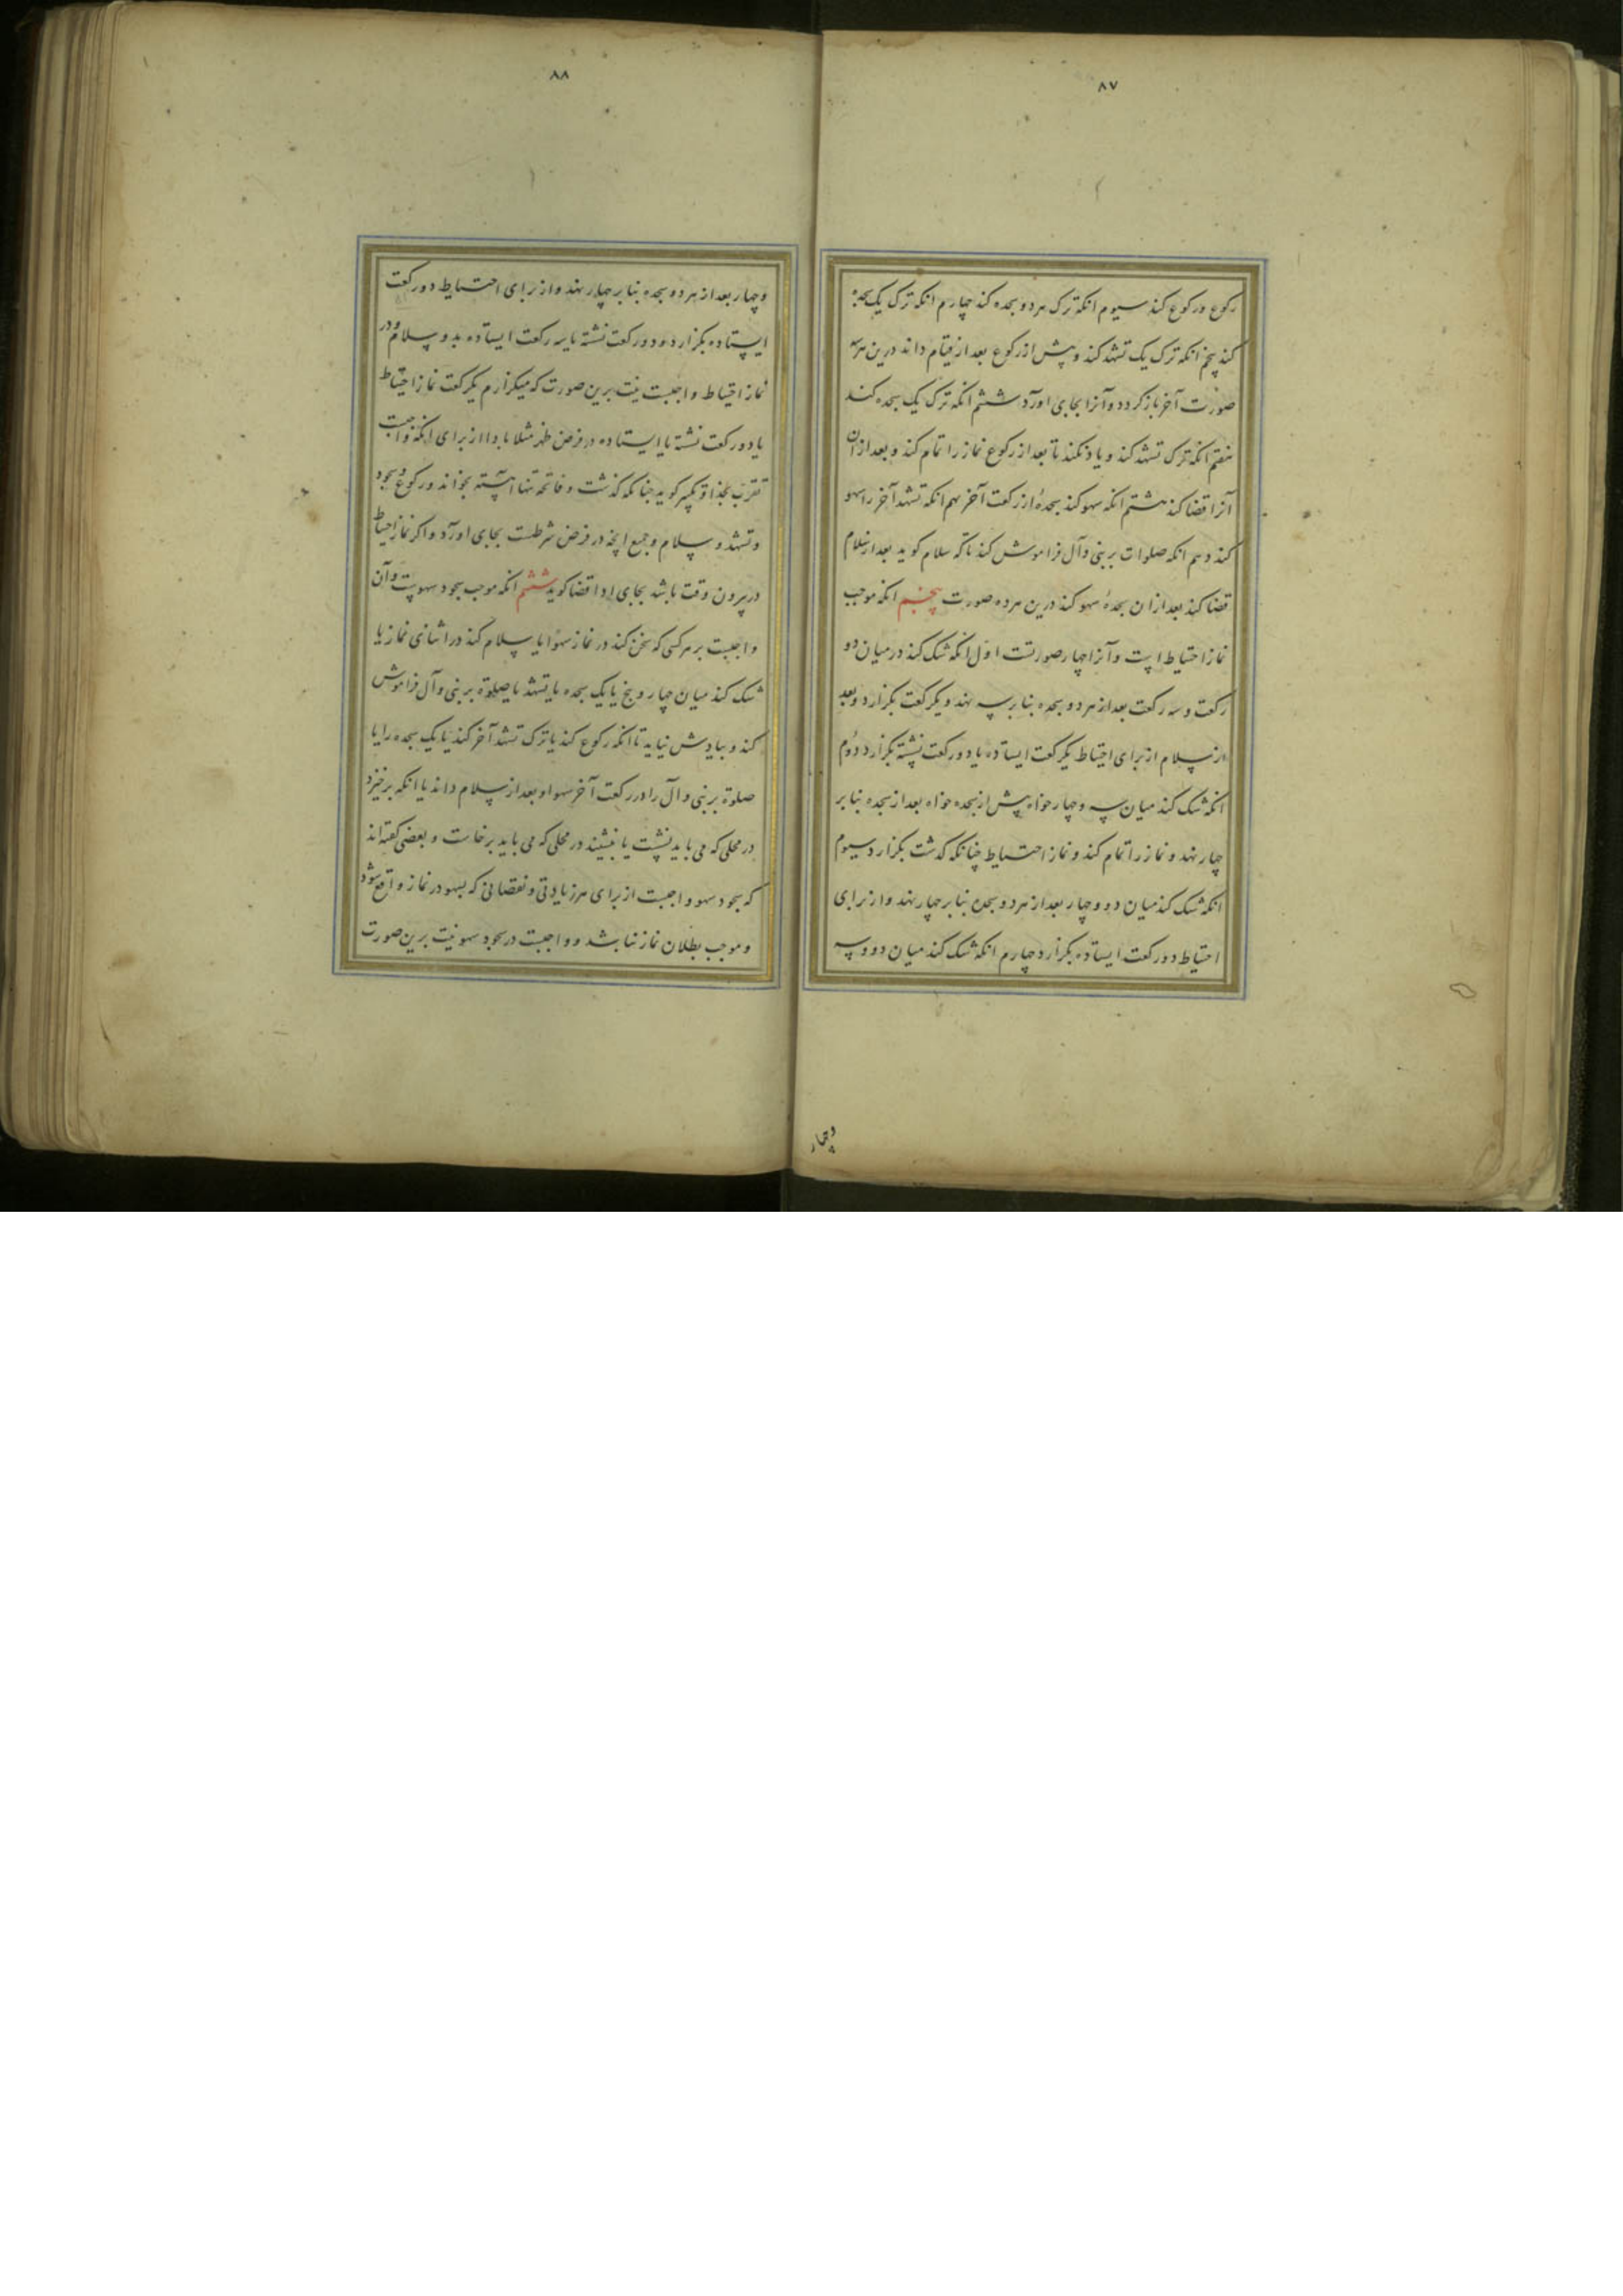 ۸۷
رکوع در رکوع کند سیوم انکه ترک هر دو سجده کند چهارم انکه ترک یک سجده
کند پنجم انکه ترک یک تشهد کند و پیش از رکوع بعد از قیام داند درین هر سه
صورت آخر باز کردد و آنرا بجای اورد ششم انکه ترک یک سجده کند
هفتم انکه ترک تشهد کند و یاد نکند تا بعد از رکوع نماز را تمام کند و بعد از ان
آنرا قضا کند هشتم انکه سهو کند سجدهٔ از رکعت آخر نهم انکه تشهد آخر را سهو
کند دهم انکه صلوات بر نبی و آل فراموش کند تا که سلام کوید بعد از سلام
قضا کند بعد از ان سجدهٔ سهو کند درین هر ده صورت پنجم انکه موجب
نماز احتیاط است و آنرا چهار صورتست اول انکه شک کند در میان دو
رکعت و سه رکعت بعد از هر دو سجده بنا بر سه نهد و یکرکعت بکزارد و بعد
از سلام از برای احتیاط یکرکعت ایستاده یا دو رکعت نشسته بکزارد دوم
انکه شک کند میان سه و چهار خواه پیش از سجده خواه بعد از سجده بنا بر
چهار نهد و نماز را تمام کند و نماز احتیاط چنانکه کذشت بکزارد سیوم
انکه شک کند میان دو و چهار بعد از هر دو سجده بنا بر چهار نهد و از برای
احتیاط دو رکعت ایستاده بکزارد چهارم انکه شک کند میان دو و سه
وچهار
۸۸
و چهار بعد از هر دو سجده بنا بر چهار نهد و از برای احتیاط دو رکعت
ایستاده بکزارد و دو رکعت نشسته یا سه رکعت ایستاده بدو سلام و در
نماز احتیاط واجبست نیت برین صورت که میکزارم یکرکعت نماز احتیاط
یا دو رکعت نشسته یا ایستاده در فرض ظهر مثلا بادا از برای انکه واجبست
تقرب بخدا و تکبیر کوید چنانکه کذشت و فاتحه تنها آهسته بخواند و رکوع و سجود
و تشهد و سلام و جمیع انچه در فرض شرطست بجای اورد و اکر نماز احتیاط
در بیرون وقت باشد بجای ادا قضا کوید ششم انکه موجب سجود سهوست و آن
واجبست بر هر کسی که سخن کند در نماز سهوا یا سلام کند در اثنای نماز یا
شک کند میان چهار و پنج یا یک سجده یا تشهد یا صلوة بر نبی و آل فراموش
کند و بیادش نیاید تا انکه رکوع کند یا ترک تشهد آخر کند یا یک سجده را یا
صلوة بر نبی و آل را در رکعت آخر سهوا و بعد از سلام داند یا انکه برخیزد
در محلی که می باید نشست یا بنشیند در محلی که می باید برخاست و بعضی کفته اند
که سجود سهو واجبست از برای هر زیادتی و نقصانی که بسهو در نماز واقع شود
و موجب بطلان نماز نباشد و واجبست در سجود سهو نیت برین صورت